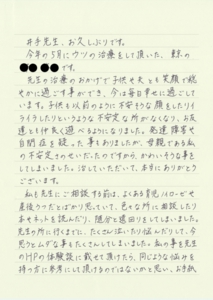 井手先生、お久しぶりです。
今年の5月にウツの治療をして頂いた、東京の
●● ●●です。
先生の治療のおかげで子供も夫とも笑顔で穏
やかに過ごす事ができ、今は毎日幸せに過ごして
います。子供も以前のように不安そうな顔をしたりイ
ライラしたりというような不安定な所がなくなり、お友
達とも仲良く遊べるようになりました。発達障害や
自閉症を疑った事もありましたが、母親である私
の不安定さのせいだったのですから、かわいそうな事を
してしまいました。治していただいて、本当にありがとう
ございます。
私も先生にご相談する前は、よくある育児ノイローゼや
産後うつだとばかり思っていて、色々な所に相談したり
本やネットを読んだり、随分と遠回りをしてしまいました。
先生の所に行くまでに、たくさん泣いたり悩んだりして、今
思うとムダな事をたくさんしてしまいました。私の事を先生
のHPの体験談に載せて頂けたら、同じような悩みを
持つ方に参考にして頂けるのではないかと思い、お手紙